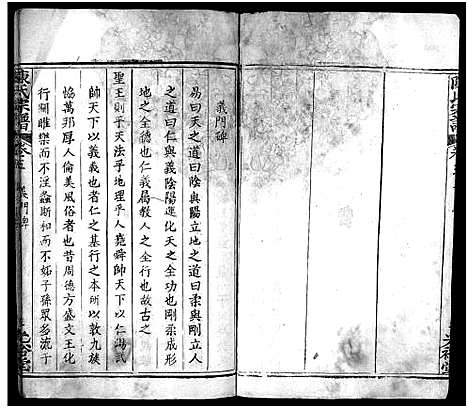 義門碑
易曰天之道曰陰與陽立地之道曰柔與剛立人
之道曰仁與義陰陽運化天之全功也剛柔成形
地之全德也仁義屬教人之全行也故古之
聖王則乎天法乎地理乎人堯舜帥天下以仁湯武
帥天下以義義也者仁之基行之本所以敦九族
協萬邦厚人倫美風俗者也昔周德方盛文王化
行關雎樂而不淫螽斯和而不妬子孫眾多流于
陳氏宗譜
卷首
義門碑